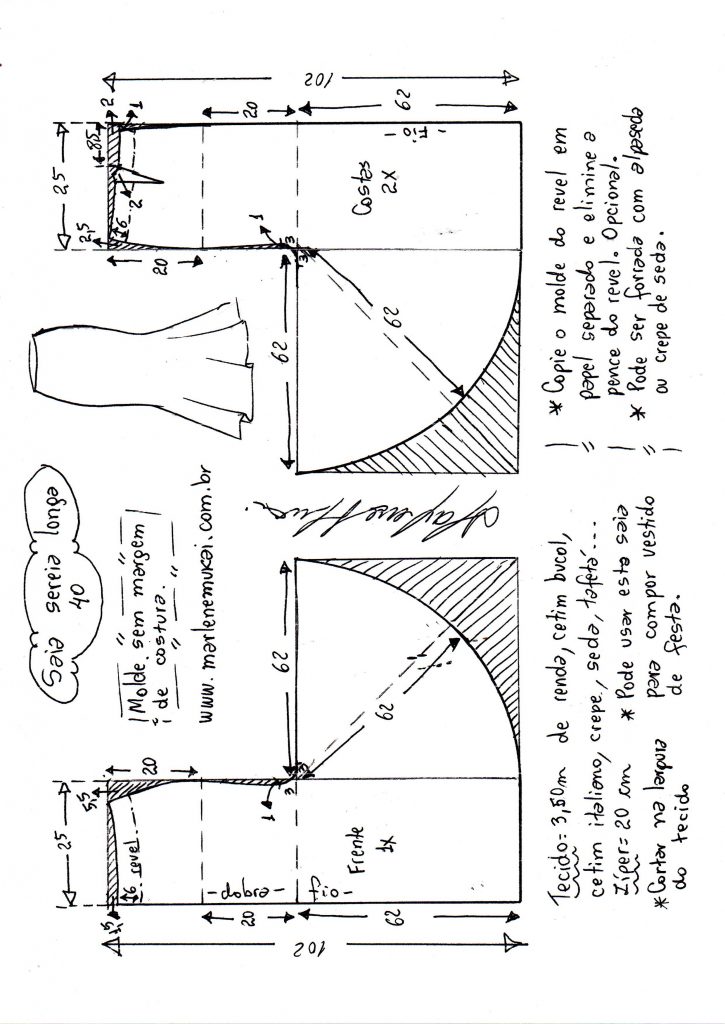 Saia sereia longa
40
Molde sem margem
de costura.
www.marlenemukai.com.br
25
1,5
6
revel
5,5
20
-dobra-
-fio-
20
1
3
3
62
62
62
102
Frente
1X
25
2,5
6
2
8,5
2
1
20
20
1
3
3
62
62
62
102
-Fio-
Costas
2X
Tecido= 3,50m de renda, cetim bucol,
cetim italiano, crepe, seda, tafetá...
Zíper= 20 cm
* Cortar na largura
do tecido
* Pode usar esta saia
para compor vestido
de festa.
* Copie o molde do revel em
papel separado e elimine a
pence do revel. Opcional.
* Pode ser forrada com alpaseda
ou crepe de seda.